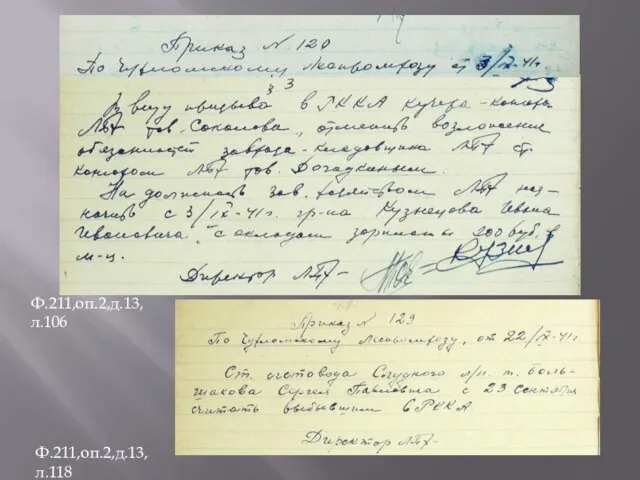 Приказ N 120
По Чухломскому Леспромхозу от 3/IX-41г.
3 3
Ввиду призыва в РККА кучера-конторы
ЛПХ тов. Соколова, отменить возложение
обязанностей завхоза-кладовщика ЛПХ
конторой ЛПХ тов. Догадкиным.
На должность зав. хозяйством ЛПХ наз-
начить с 3/IX-41г. гр-на Кузнецова Ивана
Ивановича, с окладом зарплаты 200 руб. в
м-ц.
Директор ЛПХ-
Ф.211,оп.2,д.13,
л.106
Приказ N 129
По Чухломскому Леспромхозу, от 22/IX-41г
Ст. счетовода л/п. т. Боль-
шакова Сергея Павловича с 23 сентября
считать выбывшим в РККА.
Директор ЛПХ-
Ф.211,оп.2,д.13,
л.118